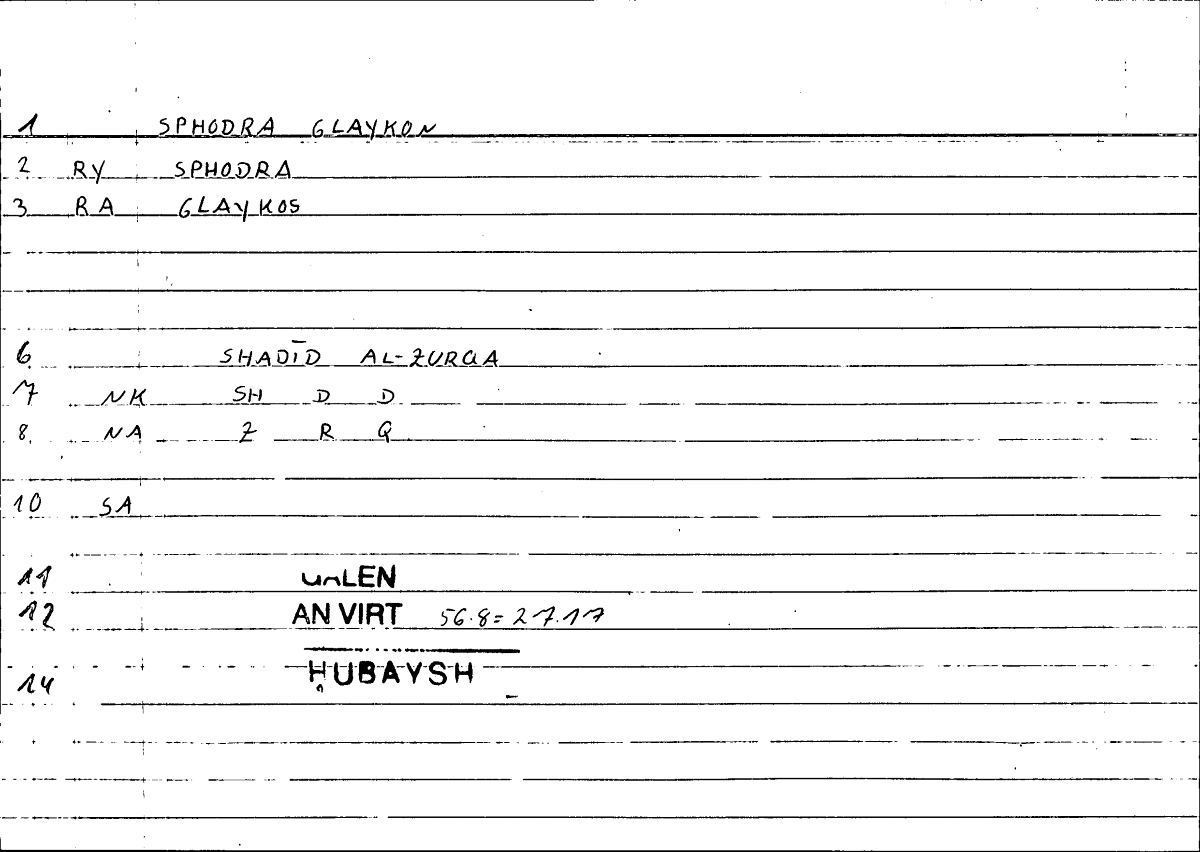 1 SPHODRA GLAYKON
2 RY SPHODRA
3 RA GLAYKOS
6 SHADĪD AL-ZURQA
7 NK SH D D
8. NA Z R Q
10 SA
11 GALEN
12 AN VIRT 56.8 = 27.17
14 ḤUBAYSH